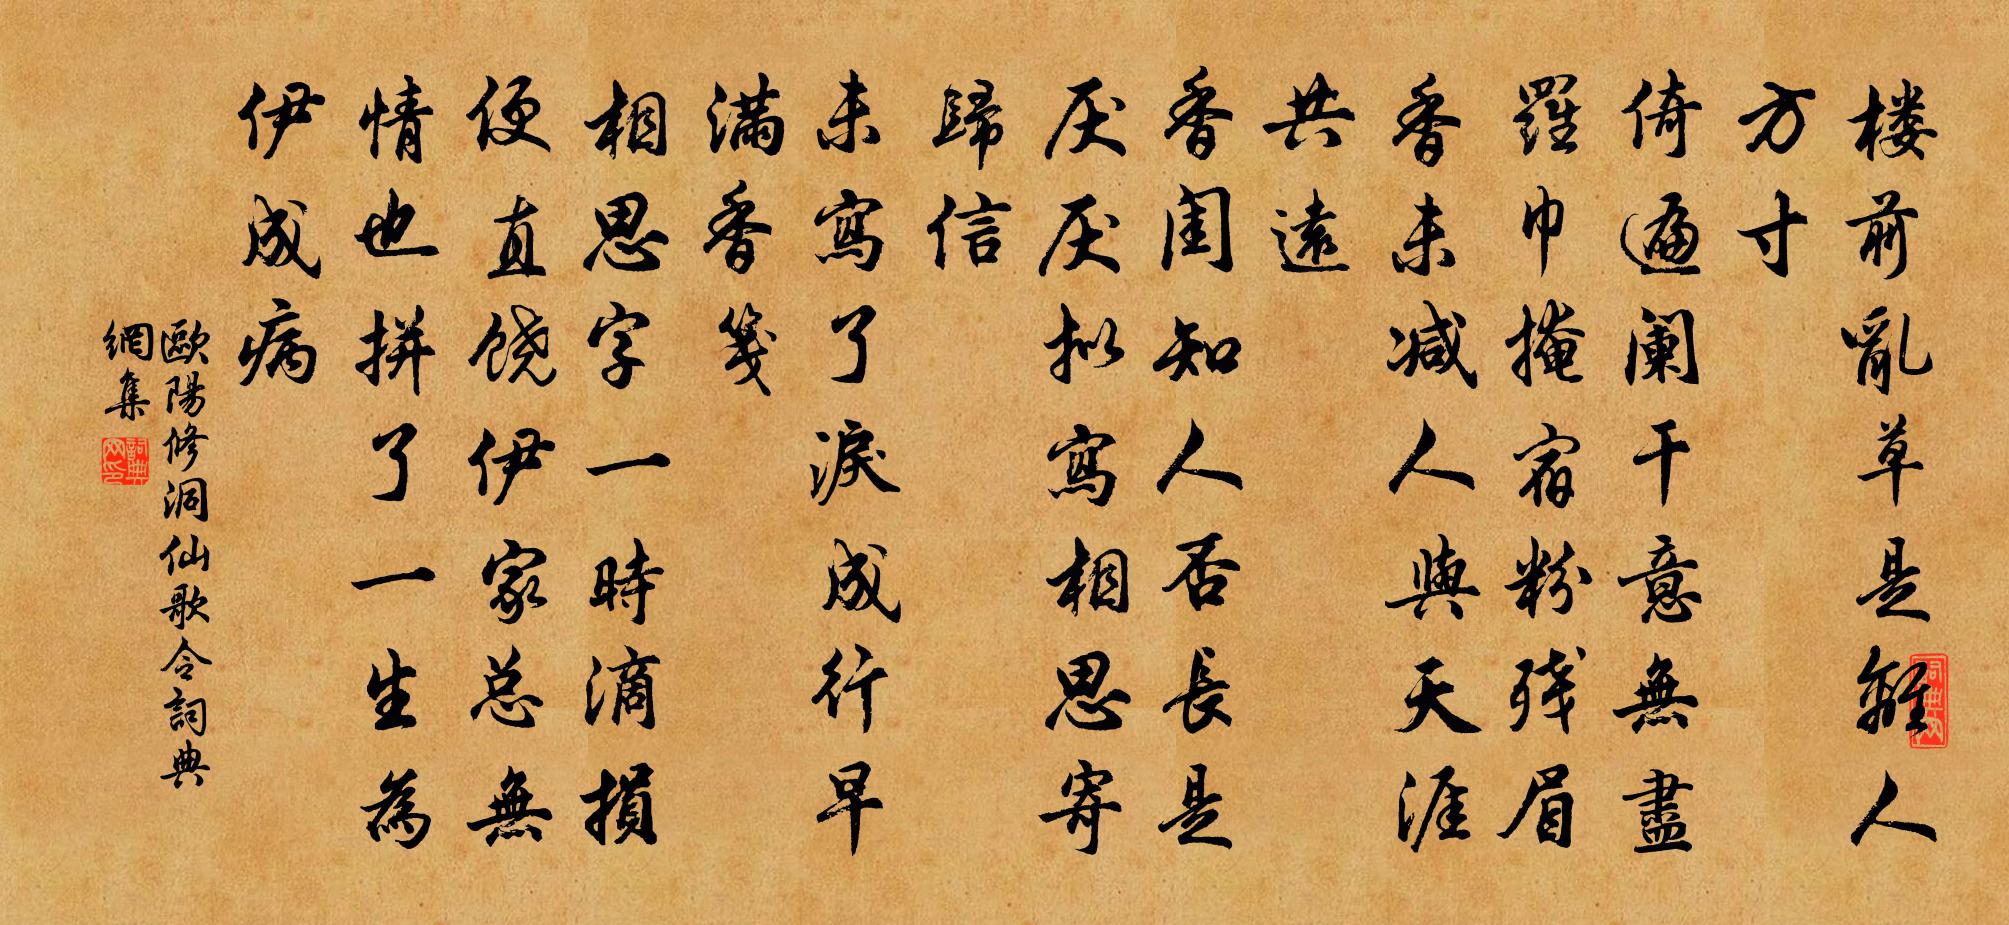 楼前亂草是離人
方寸
倚遍阑干意無盡
羅巾掩宿粉残眉
香未减人與天涯
共遠
香闺知人否長是
厌厌拟寫相思寄
歸信
未寫了淚成行早
满香箋
相思字一時滴損
便直饶伊家总無
情也拼了一生為
伊成病
歐陽修洞仙歌令詞典
網集
詞典网
詞典网印